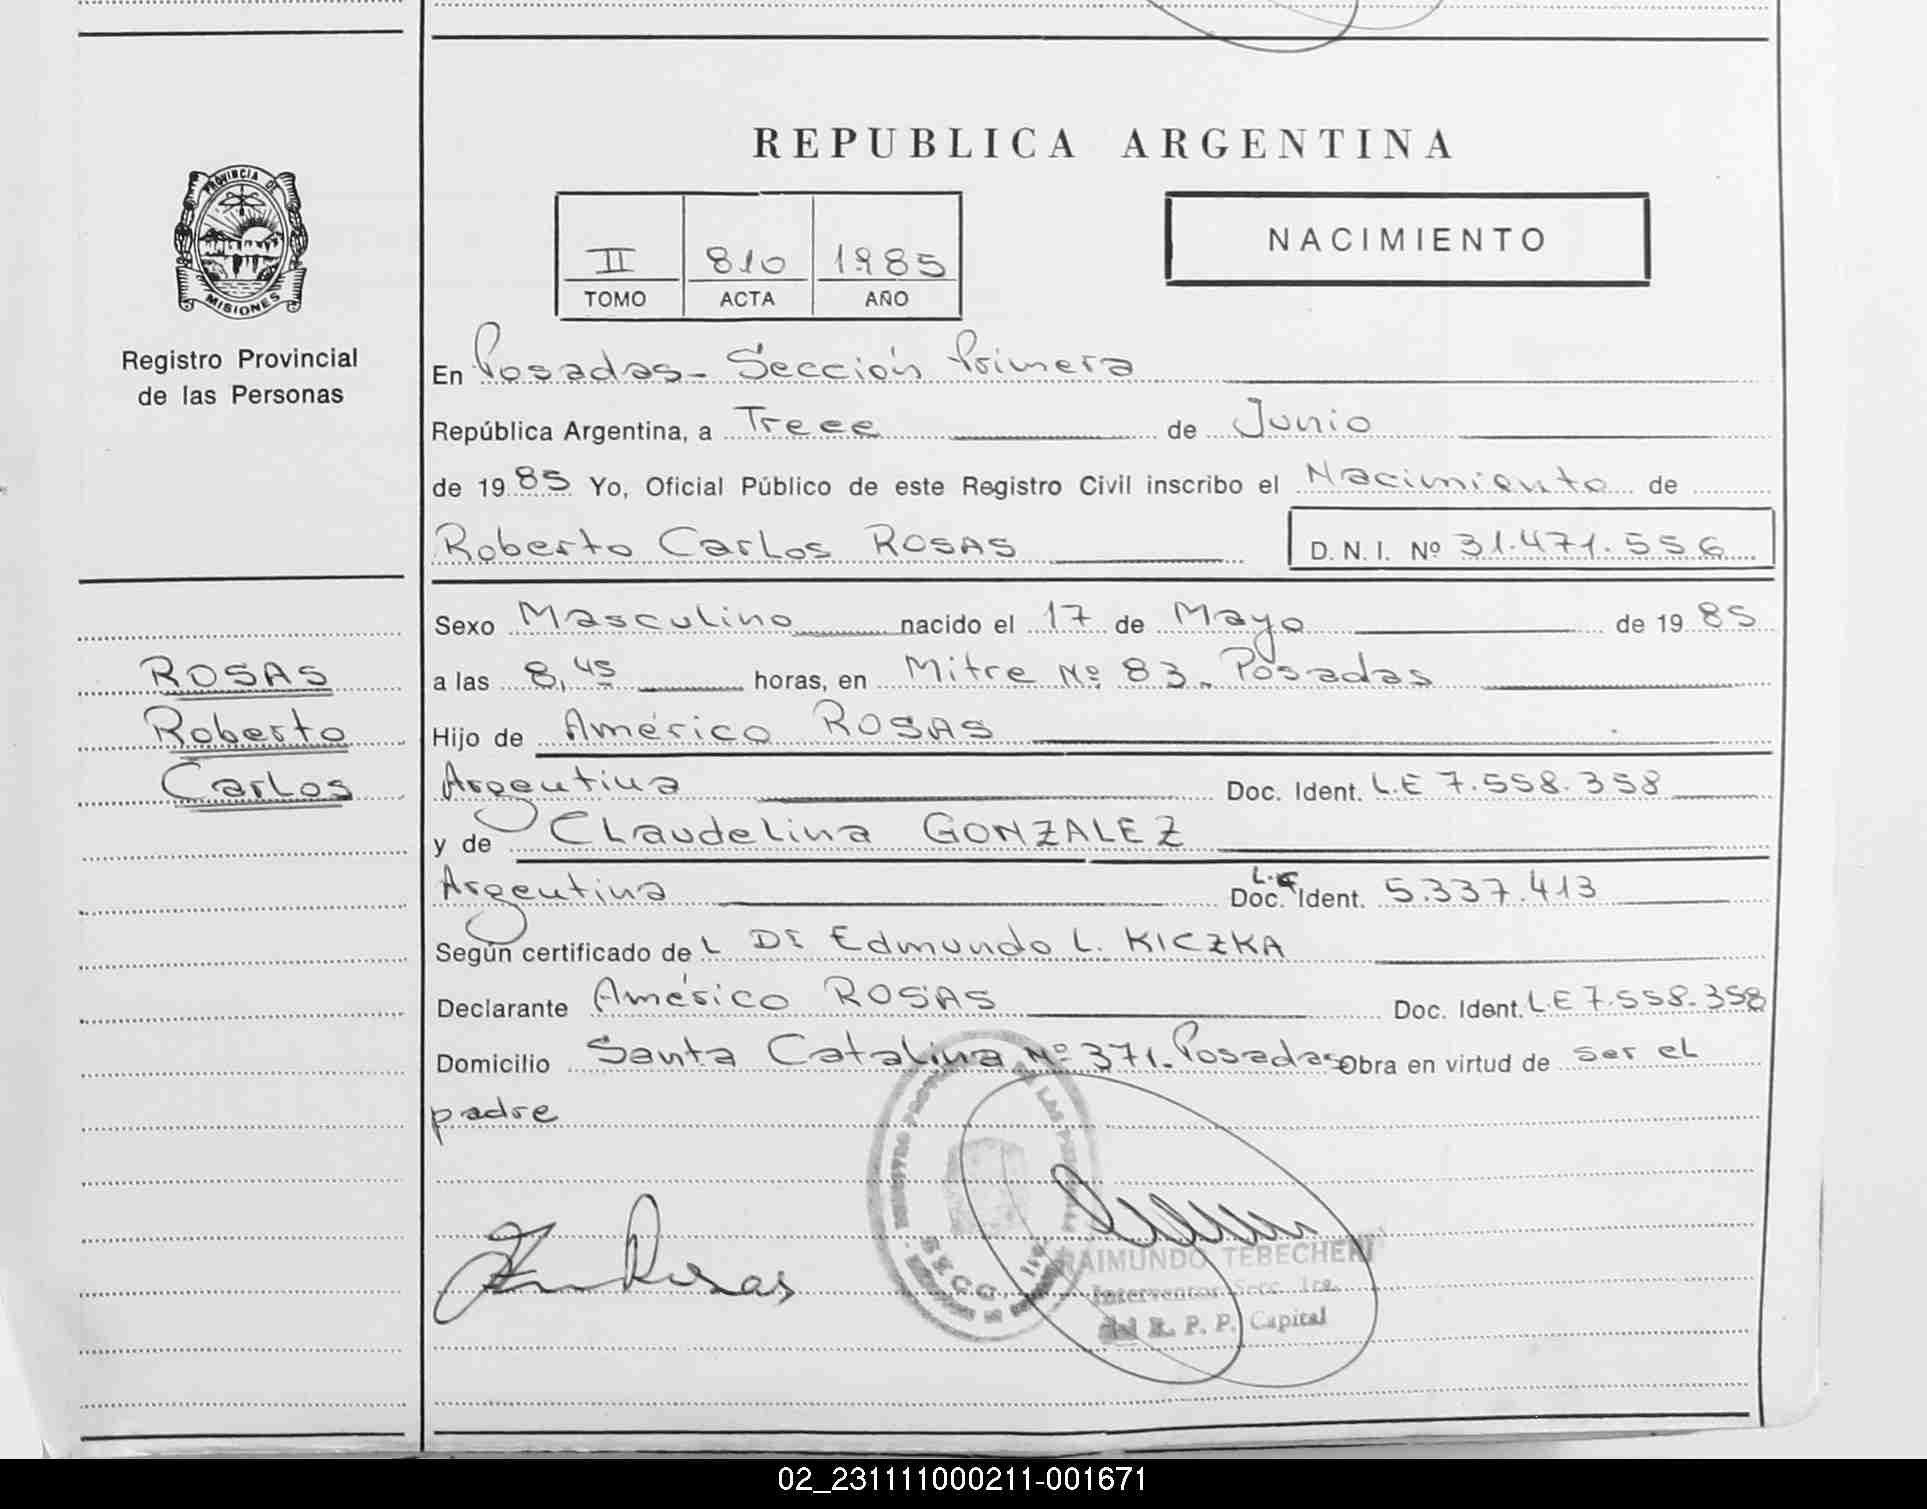 REPUBLICA ARGENTINA
PROVINCIA DE
MISIONES
Registro Provincial
de las Personas
II 810 1985
TOMO ACTA AÑO
NACIMIENTO
En Posadas - Sección Primera
República Argentina, a Trece de Junio
de 1985 Yo, Oficial Público de este Registro Civil inscribo el Nacimiento de
Roberto Carlos ROSAS D. N. I. Nº 31.471.556
ROSAS
Roberto
Carlos
Sexo Masculino nacido el 17 de Mayo de 1985
a las 8,45 horas, en Mitre Nº 83. Posadas
Hijo de Américo ROSAS
Argentina Doc. Ident. L.E 7.558.358
y de Claudelina GONZALEZ
Argentina L.C Doc. Ident. 5.337.413
Según certificado del Dr Edmundo L. KICZKA
Declarante Américo ROSAS Doc. Ident. L.E 7.558.358
Domicilio Santa Catalina Nº 371. Posadas Obra en virtud de ser el
padre
Rosas
SECC. 1ra.
RAIMUNDO TEBECHERI
Interventor Secc. 1ra.
del R. P. P. Capital
02_231111000211-001671